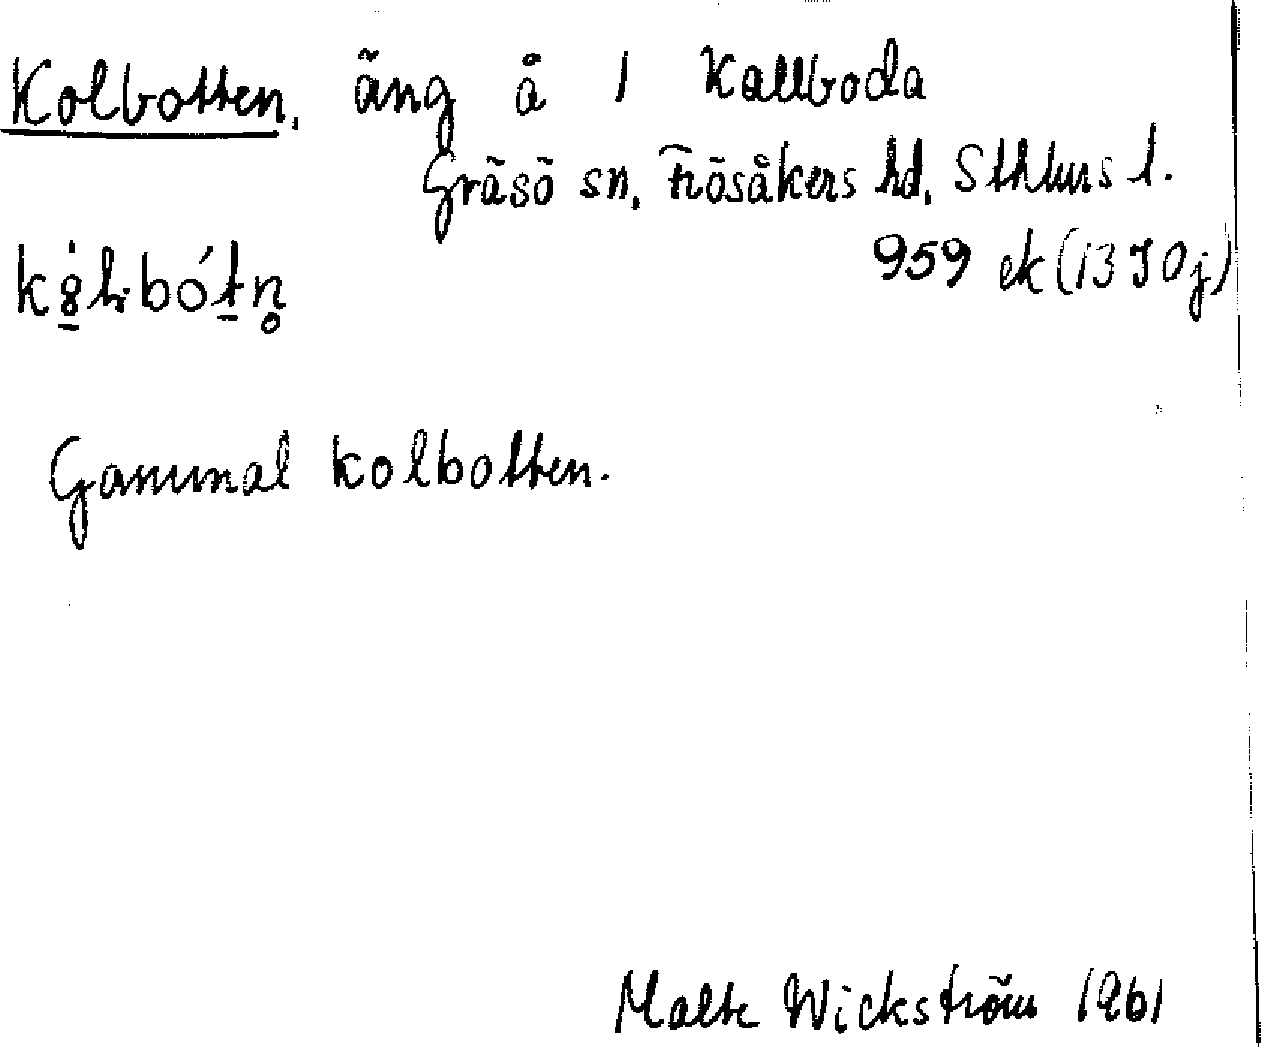 Kolbotten, äng å 1 Kallboda
Gräsö sn, Frösåkers hd, Sthlms l.
959 ek (13I0j)
Gammal kolbotten.
Malte Wickström 1961